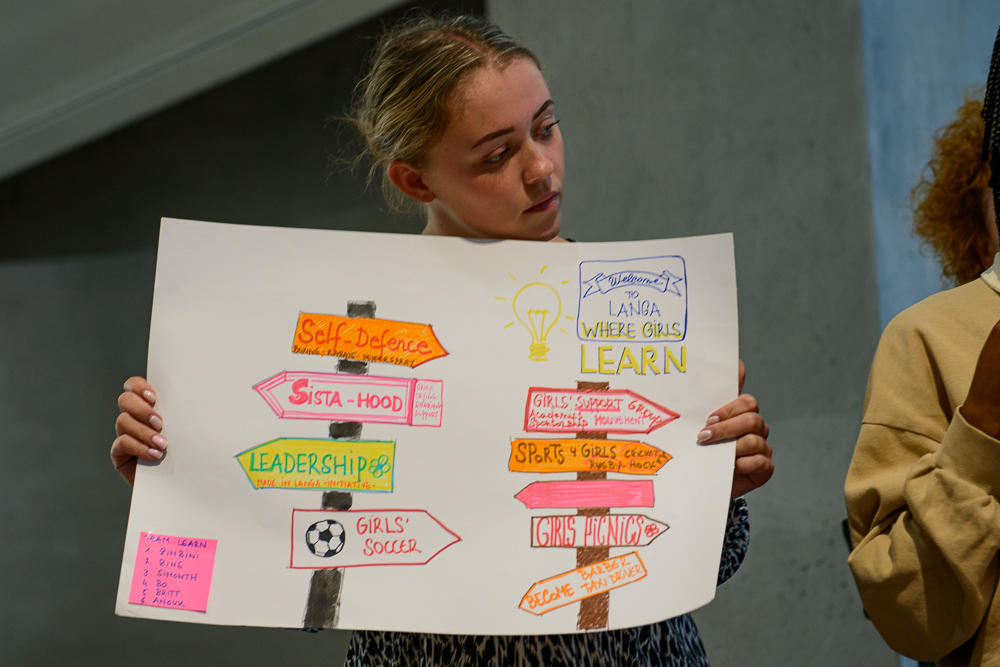 Self-Defence
BOXING - KARATE - PEPPERSPRAY
SISTA-HOOD
LEADERSHIP
MADE IN LANGA - INITIATIVE -
GIRLS'
SOCCER
TEAM LEARN
1. ZIMBINI
2. BING
3. SIMONTH
4. BO
5 BRITT
6. ANOUK
Welcome
TO
LANGA
WHERE GIRLS
LEARN
GIRLS' SUPPORT GROUP
Academis MOUVEMENT
Sponsorship
SPORTS 4 GIRLS CRICKET
RUGBY. HOCKEY
GIRLS PICNICS
BECOME BARBER
TAXI DRIVER